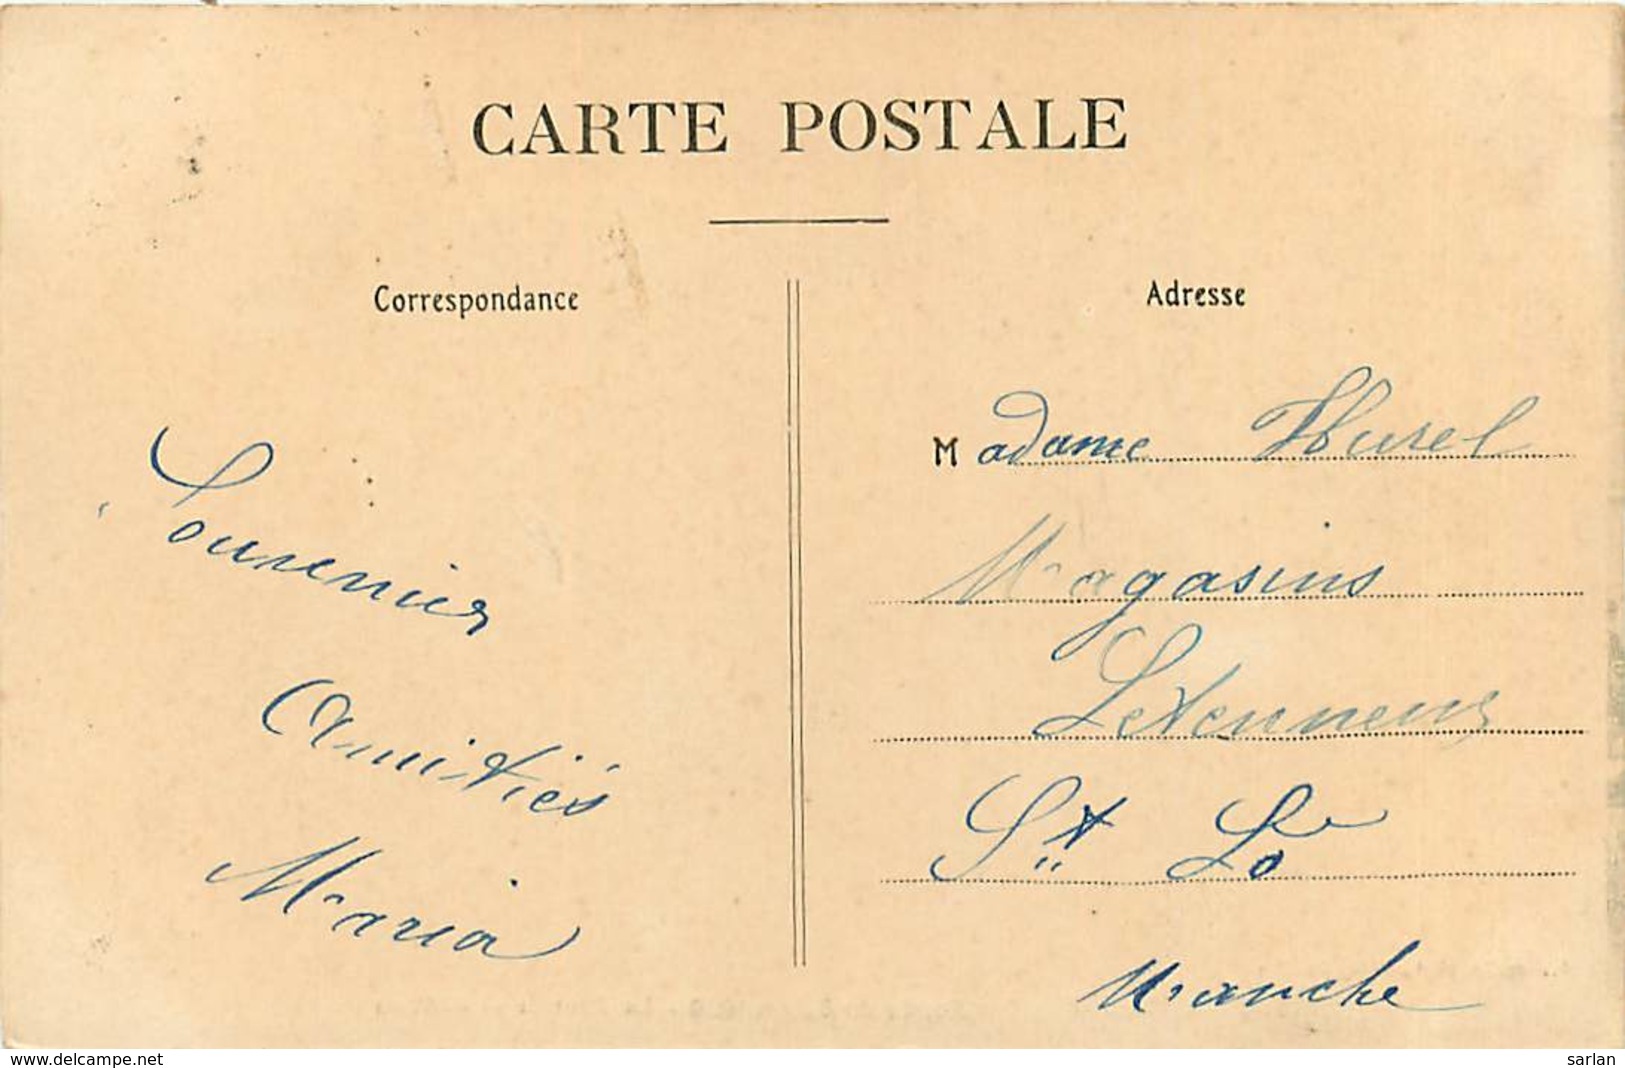 CARTE POSTALE
Correspondance
Souvenir
Amitiés
Maria
Adresse
Madame Hurel
Magasins
Letenneur
St Lo
Manche
www.delcampe.net
sarlan